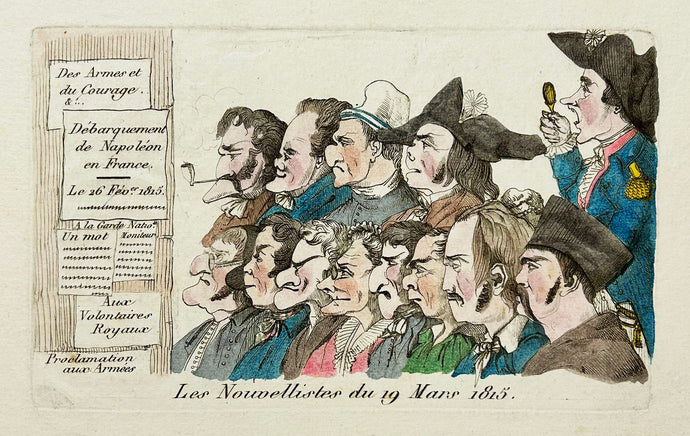 Des Armes et
du Courage.
&c..
Débarquement
de Napoléon
en France.
Le 26 Féver 1815.
A la Garde Natio.le
Un mot Moniteur
Aux
Volontaires
Royaux
Proclamation
aux Armées
Les Nouvellistes du 19 Mars 1815.